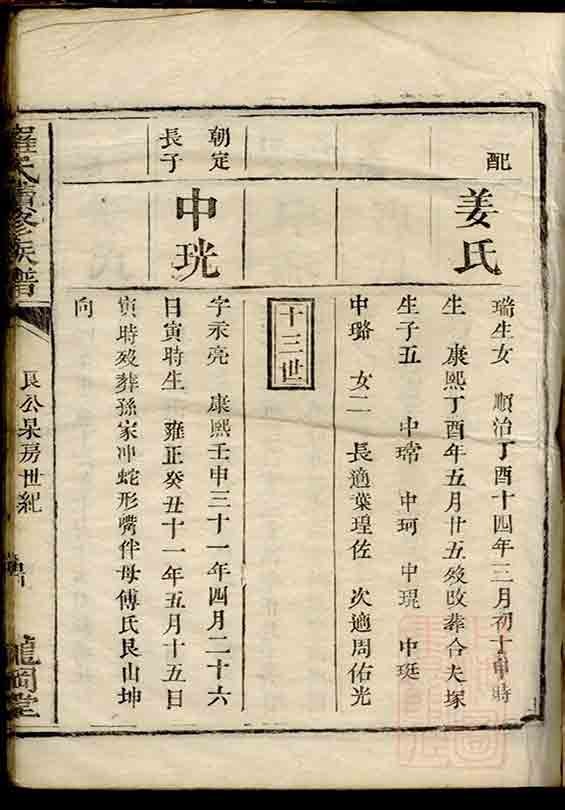 配
姜氏
瑞生女　順治丁酉十四年三月初十申時
生　康熙丁酉年五月廿五歿改葬合夫塚
生子五　中瑺　中珂　中琨　中珽
中璐　女二　長適葉瑝佐　次適周佑光
十三世
朝定
長子
中珖
字永亮　康熙壬申三十一年四月二十六
日寅時生　雍正癸丑十一年五月十五日
寅時歿葬孫家冲蛇形嘴伴母傅氏艮山坤
向
羅氏續修族譜
良公杲房世紀
龍岡堂